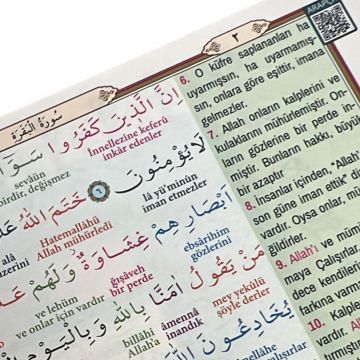 ARAPÇA
سُورَةُ الْبَقَرَةِ
٢
اِنَّ الَّذِينَ كَفَرُوا سَوَٓا
İnnellezine keferû
inkâr edenler
sevâün
birdir, değişmez
لَا يُؤْمِنُونَ ﴿٦﴾ خَتَمَ اللّٰهُ
lâ yü'minûn
iman etmezler
Hatemallâhü
Allah mühürledi
اَبْصَارِهِمْ غِشَاوَةٌ وَلَهُمْ
ebsârihim
gözlerini
ğışâveh
bir perde
ve lehüm
ve onlar için vardır
مَنْ يَقُولُ اٰمَنَّا بِاللّٰهِ وَبِالْيَوْمِ
mey yekûlü
şöyle derler
âmennâ
inandık
billâhi
Allah'a
يُخَادِعُونَ اللّٰهَ
6. O küfre saplananları ha
uyarmışsın, ha uyarmamış-
sın, onlara göre eşittir, imana
gelmezler.
7. Allah onların kalplerini ve
kulaklarını mühürlemiştir. On-
ların gözlerine bir perde in-
miştir. Bunların hakkı, büyük
bir azaptır.
8. İnsanlar içinden, "Allah
son güne iman ettik" di
vardır. Oysa onlar, m
ğildirler.
9. Allah'ı ve mümi
maya Çalışırlar
dece kendiler
farkına varm
10. Kalpl